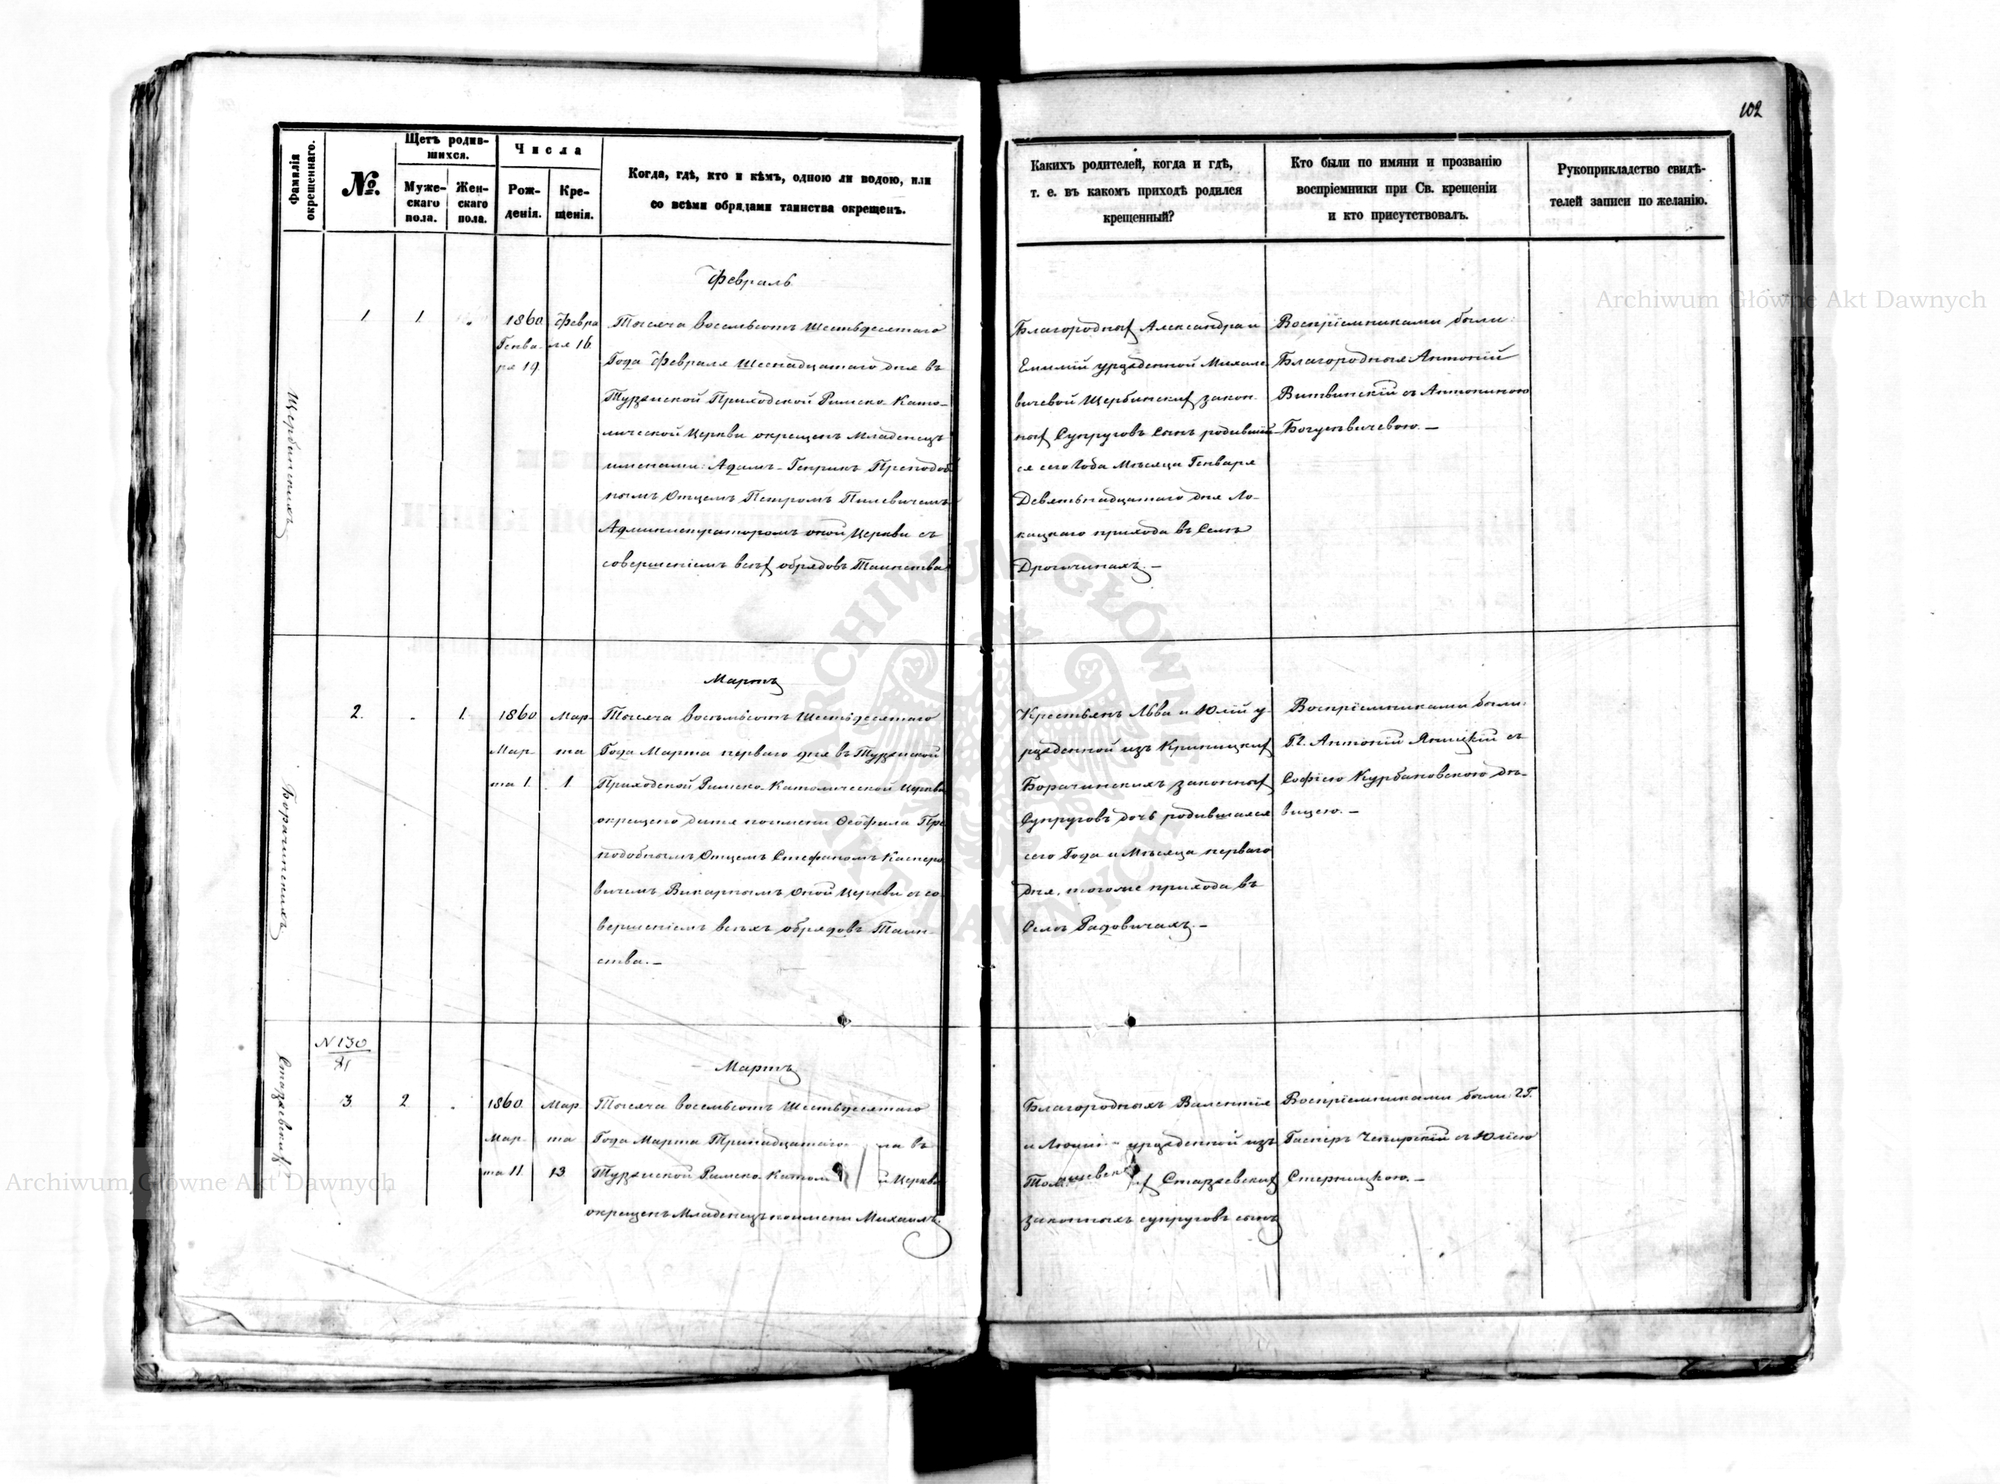 102
Фамилія окрещеннаго.
№.
Щетъ родив-
шихся.
Муже-
скаго
пола.
Жен-
скаго
пола.
Числа
Рож-
денія.
Кре-
щенія.
Когда, гдѣ, кто и кѣмъ, одною ли водою, или
со всѣми обрядами таинства окрещенъ.
Какихъ родителей, когда и гдѣ,
т. е. въ какомъ приходѣ родился
крещенный?
Кто были по имяни и прозванію
воспріемники при Св. крещеніи
и кто присутствовалъ.
Рукоприкладство свидѣ-
телей записи по желанію.
Щербинскихъ
1
1.
1860
Генва-
ря 19
Февра
ля 16
Февраль
Тысяча восемьсотъ Шестьдесятаго
Года Февраля Шестнадцатаго дня въ
Турійской Приходской Римско-Като-
лической Церкви окрещенъ Младенецъ
именами: Адамъ-Генрикъ Преподоб
нымъ Отцемъ Петромъ
Администраторомъ оной Церкви съ
совершеніемъ всѣхъ обрядовъ Таинства
Благородныхъ Александра и
Емиліи урожденной Михале
вичевой Щербинскихъ закон-
ныхъ Супруговъ Сынъ родившій
ся сего Года Мѣсяца Генваря
Девятьнадцатаго дня Ло-
кацкаго прихода въ Селѣ
Дрогичинахъ.—
Воспріемниками были:
Благородные Антоній
Витвинскій съ Антониною
Богушевичевою.—
Борачинскихъ
2.
1.
1860
Мар-
та 1.
Мар-
та
1
Мартъ
Тысяча восемьсотъ Шестьдесятаго
Года Марта перваго дня въ Турійской
Приходской Римско-Католической Церкви
окрещено дитя по имени Теофила Пре
подобнымъ Отцемъ Стефаномъ Каспро
вичемъ Викарнымъ Оной Церкви съ со
вершеніемъ всѣхъ обрядовъ Таин-
ства.—
Крестьянъ Льва и Юліи у-
рожденной изъ Криницкихъ
Борачинскихъ законныхъ
Супруговъ дочь родившаяся
сего Года и Мѣсяца перваго
дня, тогоже прихода въ
Селѣ Радовичахъ.—
Воспріемниками были:
Бл. Антоній Яницкій съ
Софіею Курбановскою дѣ-
вицею.—
Старжевскихъ
N 130
3
2
1860
Мар-
та 11
Мар
та
13
Мартъ
Тысяча восемьсотъ Шестьдесятаго
Года Марта Тринадцатаго въ
Турійской Римско-Катол й Церкви
окрещенъ Младенецъ по имени Михаилъ.
Благородныхъ Валентія
и урожденной изъ
Старжевскихъ
законныхъ супруговъ сынъ
Воспріемниками были: Г. Г.
Гасперъ съ Юліею
Стерницкою.—
Archiwum Główne Akt Dawnych
Archiwum Główne Akt Dawnych
ARCHIWUM GŁÓWNE AKT DAWNYCH